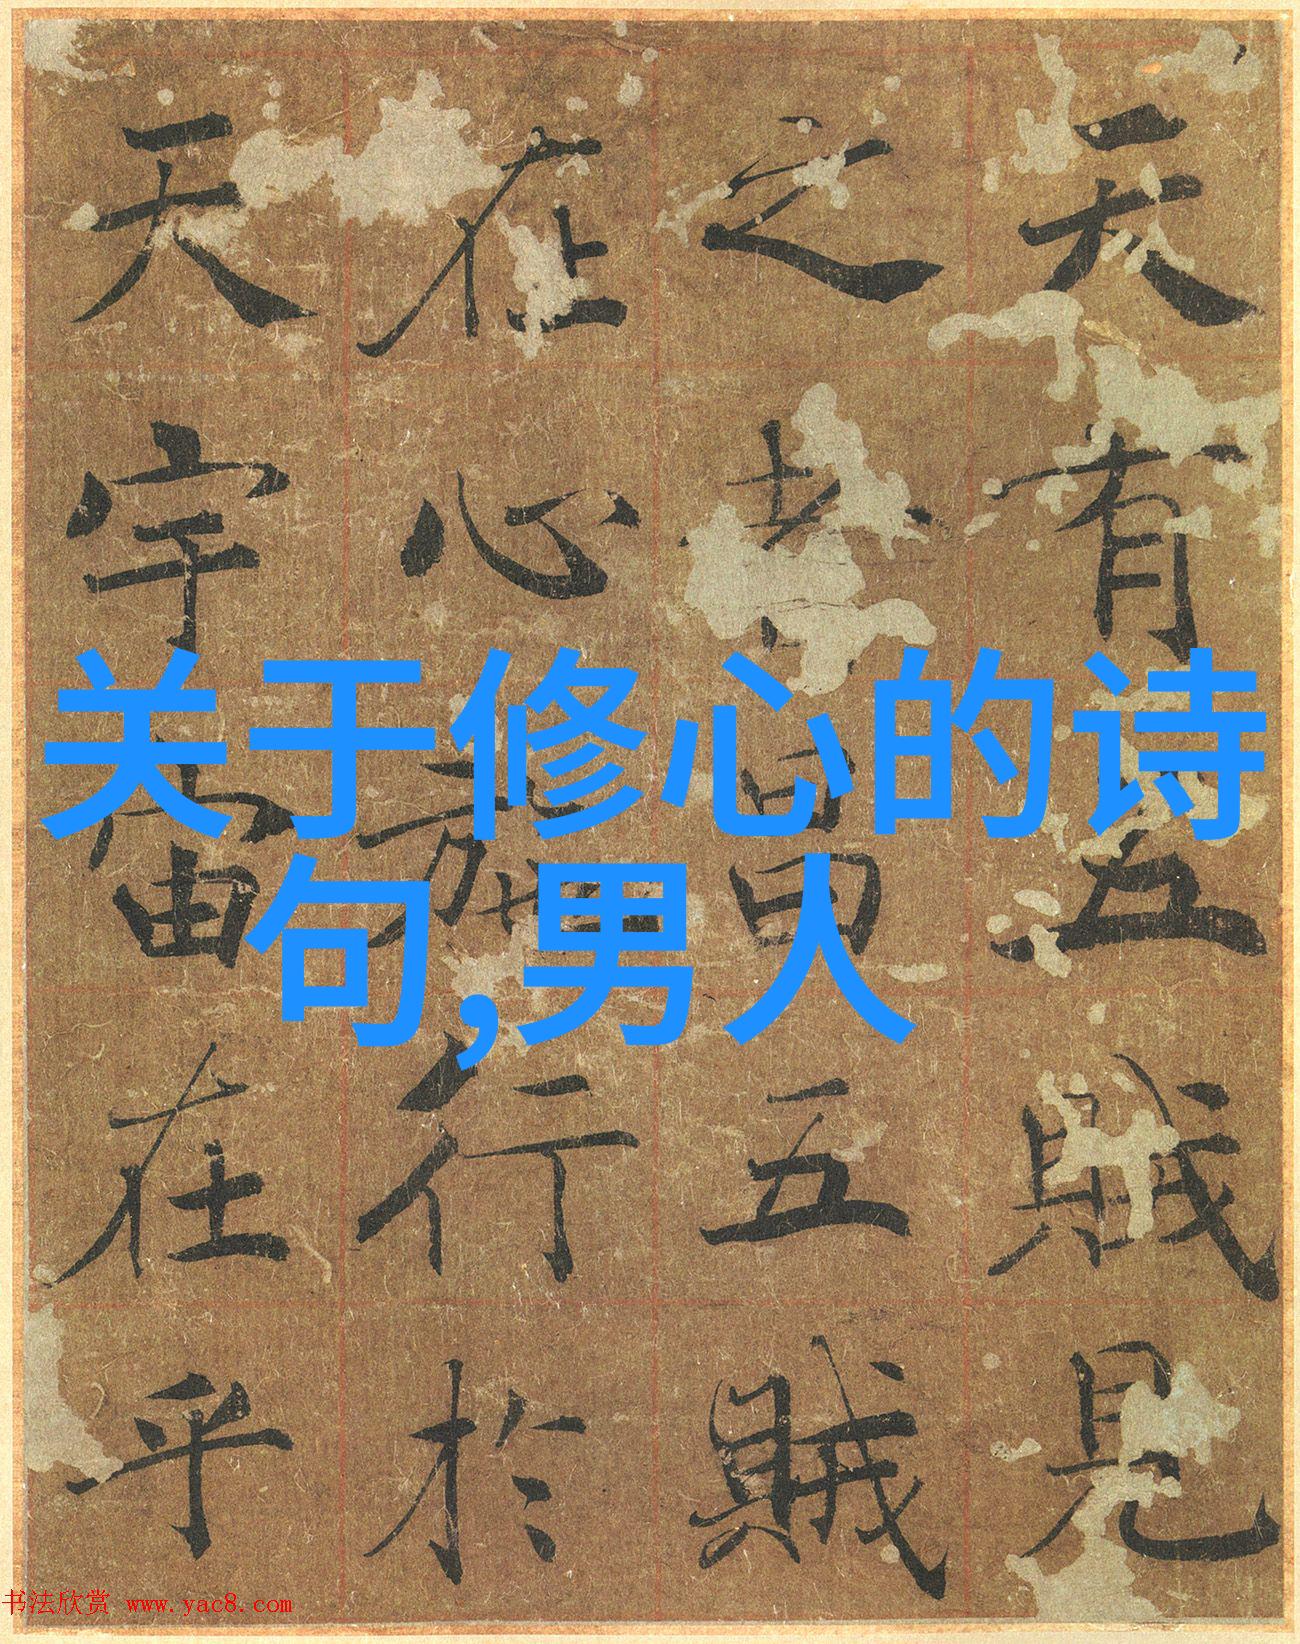 关于修心的诗
句,男人
天有五賊見
之者昌五賊
在心施行於
天宇宙在乎
书法欣赏 www.yac8.com